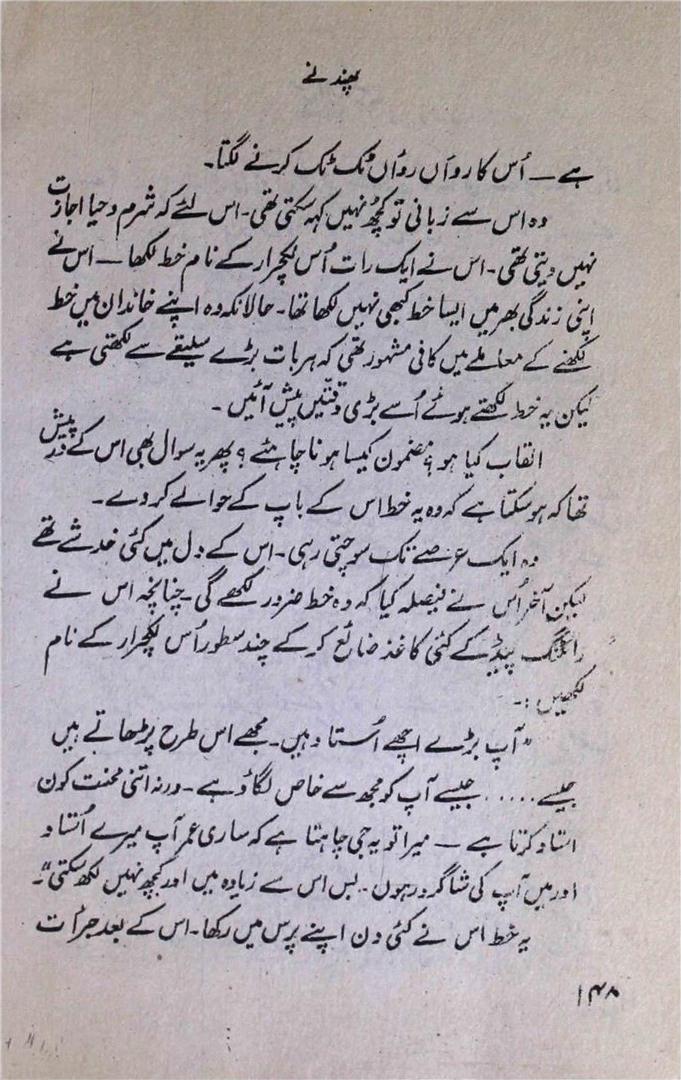 پھندنے
ہے — اُس کا رواں رواں ٹک ٹک کرنے لگتا۔
وہ اس سے زبانی تو کچھ نہیں کہہ سکتی تھی۔ اس لئے کہ شرم و حیا اجازت
نہیں دیتی تھی۔ اس نے ایک رات اُس لیکچرار کے نام خط لکھا — اس نے
اپنی زندگی بھر میں ایسا خط کبھی نہیں لکھا تھا۔ حالانکہ وہ اپنے خاندان میں خط
لکھنے کے معاملے میں کافی مشہور تھی کہ ہر بات بڑے سلیقے سے لکھتی ہے
لیکن یہ خط لکھتے ہوئے اُسے بڑی دقتیں پیش آئیں ۔
القاب کیا ہو؟ مضمون کیسا ہونا چاہئے؟ پھر یہ سوال بھی اس کے در پیش
تھا کہ ہو سکتا ہے کہ وہ یہ خط اس کے باپ کے حوالے کر دے۔
وہ ایک عرصے تک سوچتی رہی۔ اس کے دل میں کئی خدشے تھے
لیکن آخر اُس نے فیصلہ کیا کہ وہ خط ضرور لکھے گی۔ چنانچہ اس نے
رائٹنگ پیڈ کے کئی کاغذ ضائع کر کے چند سطور اُس لیکچرار کے نام
لکھیں :۔
”آپ بڑے اچھے اُستاد ہیں۔ مجھے اس طرح پڑھاتے ہیں
جیسے ..... جیسے آپ کو مجھ سے خاص لگاؤ ہے۔ ورنہ اتنی محنت کون
استاد کرتا ہے — میرا تو یہ جی چاہتا ہے کہ ساری عمر آپ میرے اُستاد
اور میں آپ کی شاگرد رہوں۔ بس اس سے زیادہ میں اور کچھ نہیں لکھ سکتی“۔
یہ خط اس نے کئی دن اپنے پرس میں رکھا۔ اس کے بعد جرأت
۱۴۸